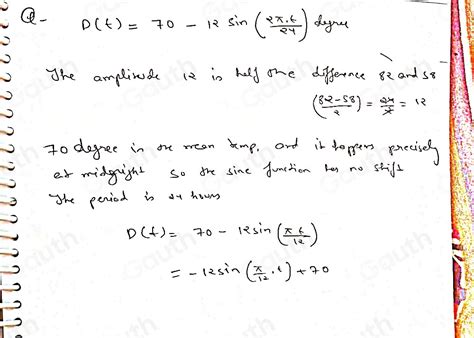 Q-
D(t) = 70 - 12 sin (2π.t/24) degree
The amplitude 12 is half the difference 82 and 58
(82-58/2) = 24/2 = 12
70 degree is the mean temp. and it happens precisely
at midnight so the sine function has no shift
The period is 24 hours
D(t) = 70 - 12 sin (πt/12)
= -12 sin (π/12 . t) + 70